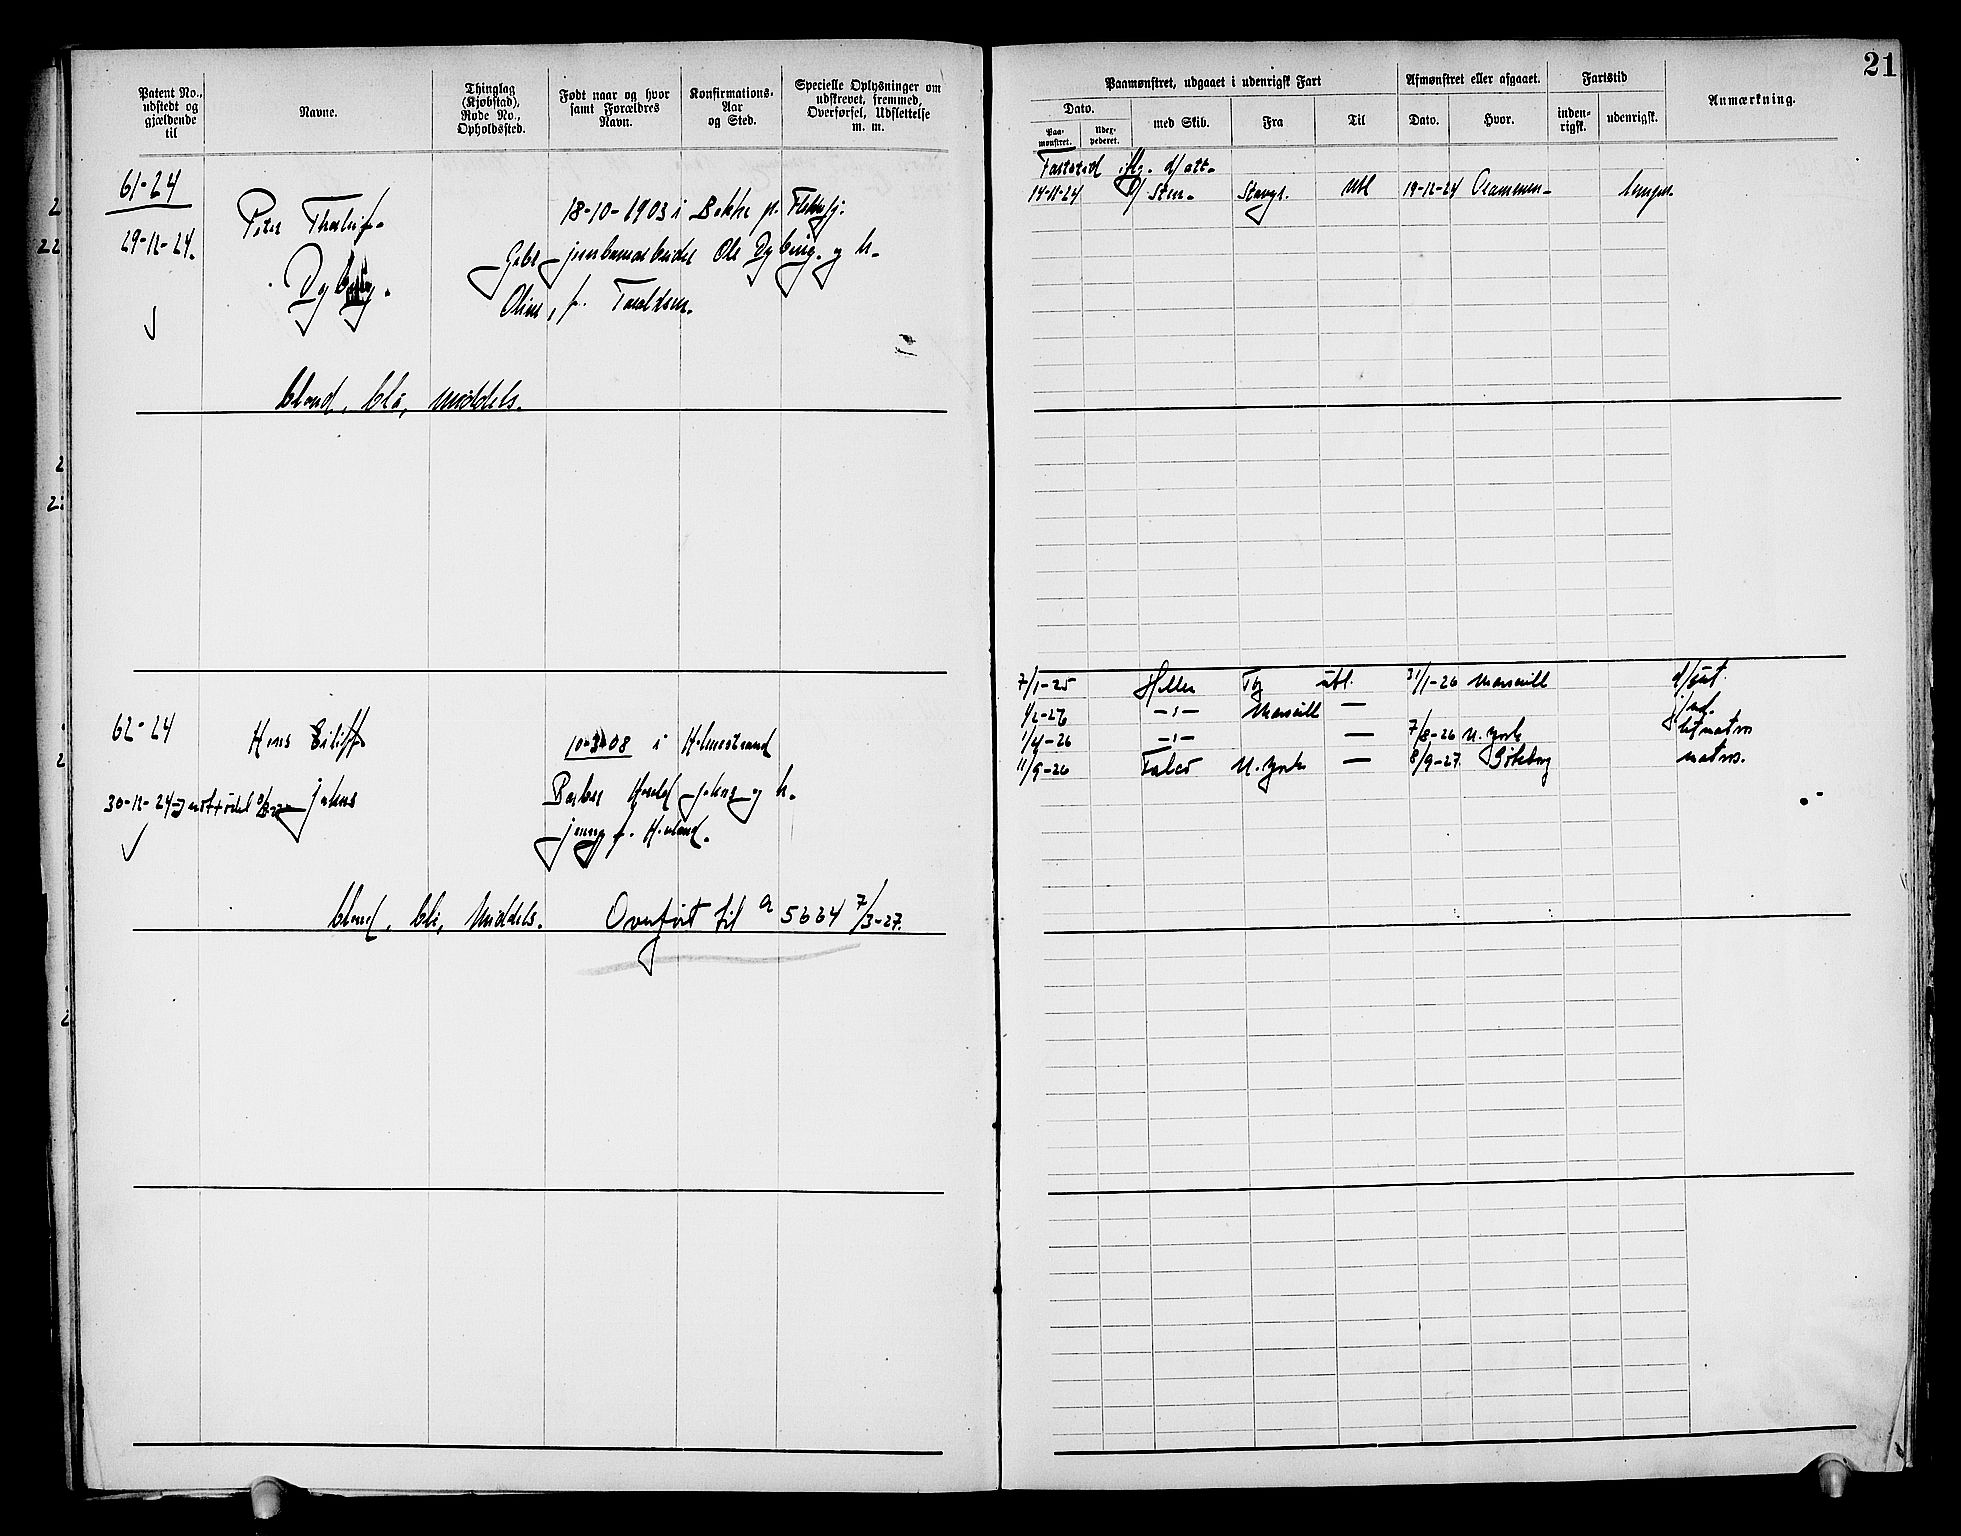 21
Patent No., udstedt og gjældende til
Navne.
Thinglag (Kjøbstad), Rode No., Opholdssted.
Født naar og hvor samt Forældres Navn.
Konfirmations-Aar og Sted.
Specielle Oplysninger om udskrevet, fremmed, Overførsel, Udslettelse m. m.
Paamønstret, udgaaet i udenrigsk Fart
Dato.
Paa-mønstret.
Udex-pederet.
med Skib.
Fra
Til
Afmønstret eller afgaaet.
Dato.
Hvor.
Fartstid
inden-rigsk.
udenrigsk.
Anmærkning.
61-24
29-12-24.
Peter
Dybing.
18-10-1903 i Bakke pr. Flekkefj.
jernbanearbeider Ole Dybing. og h.
Oline, f. Taraldsen.
blond, blå, middels.
Fartstid iflg. d/ att.
14-11-24 Sten. Stavgr. Utl 19-12-24 Drammen
62-24
Hans Eiliff
30-12-24 Johns
10-3-08 i Holmestrand
Harald Johns og h.
Jenny f. Holand.
blond, blå, Middels. Overført til a 5664 7/3-27.
7/1-25 Hellen Tbg utl. 31/1-26 Marseill d/gut.
1/2-26 -"- Marseill — j/md.
1/4-26 -"- — 7/8-26 N. York letmatros
11/9-26 N. York — 8/9-27 Gøteborg matros.